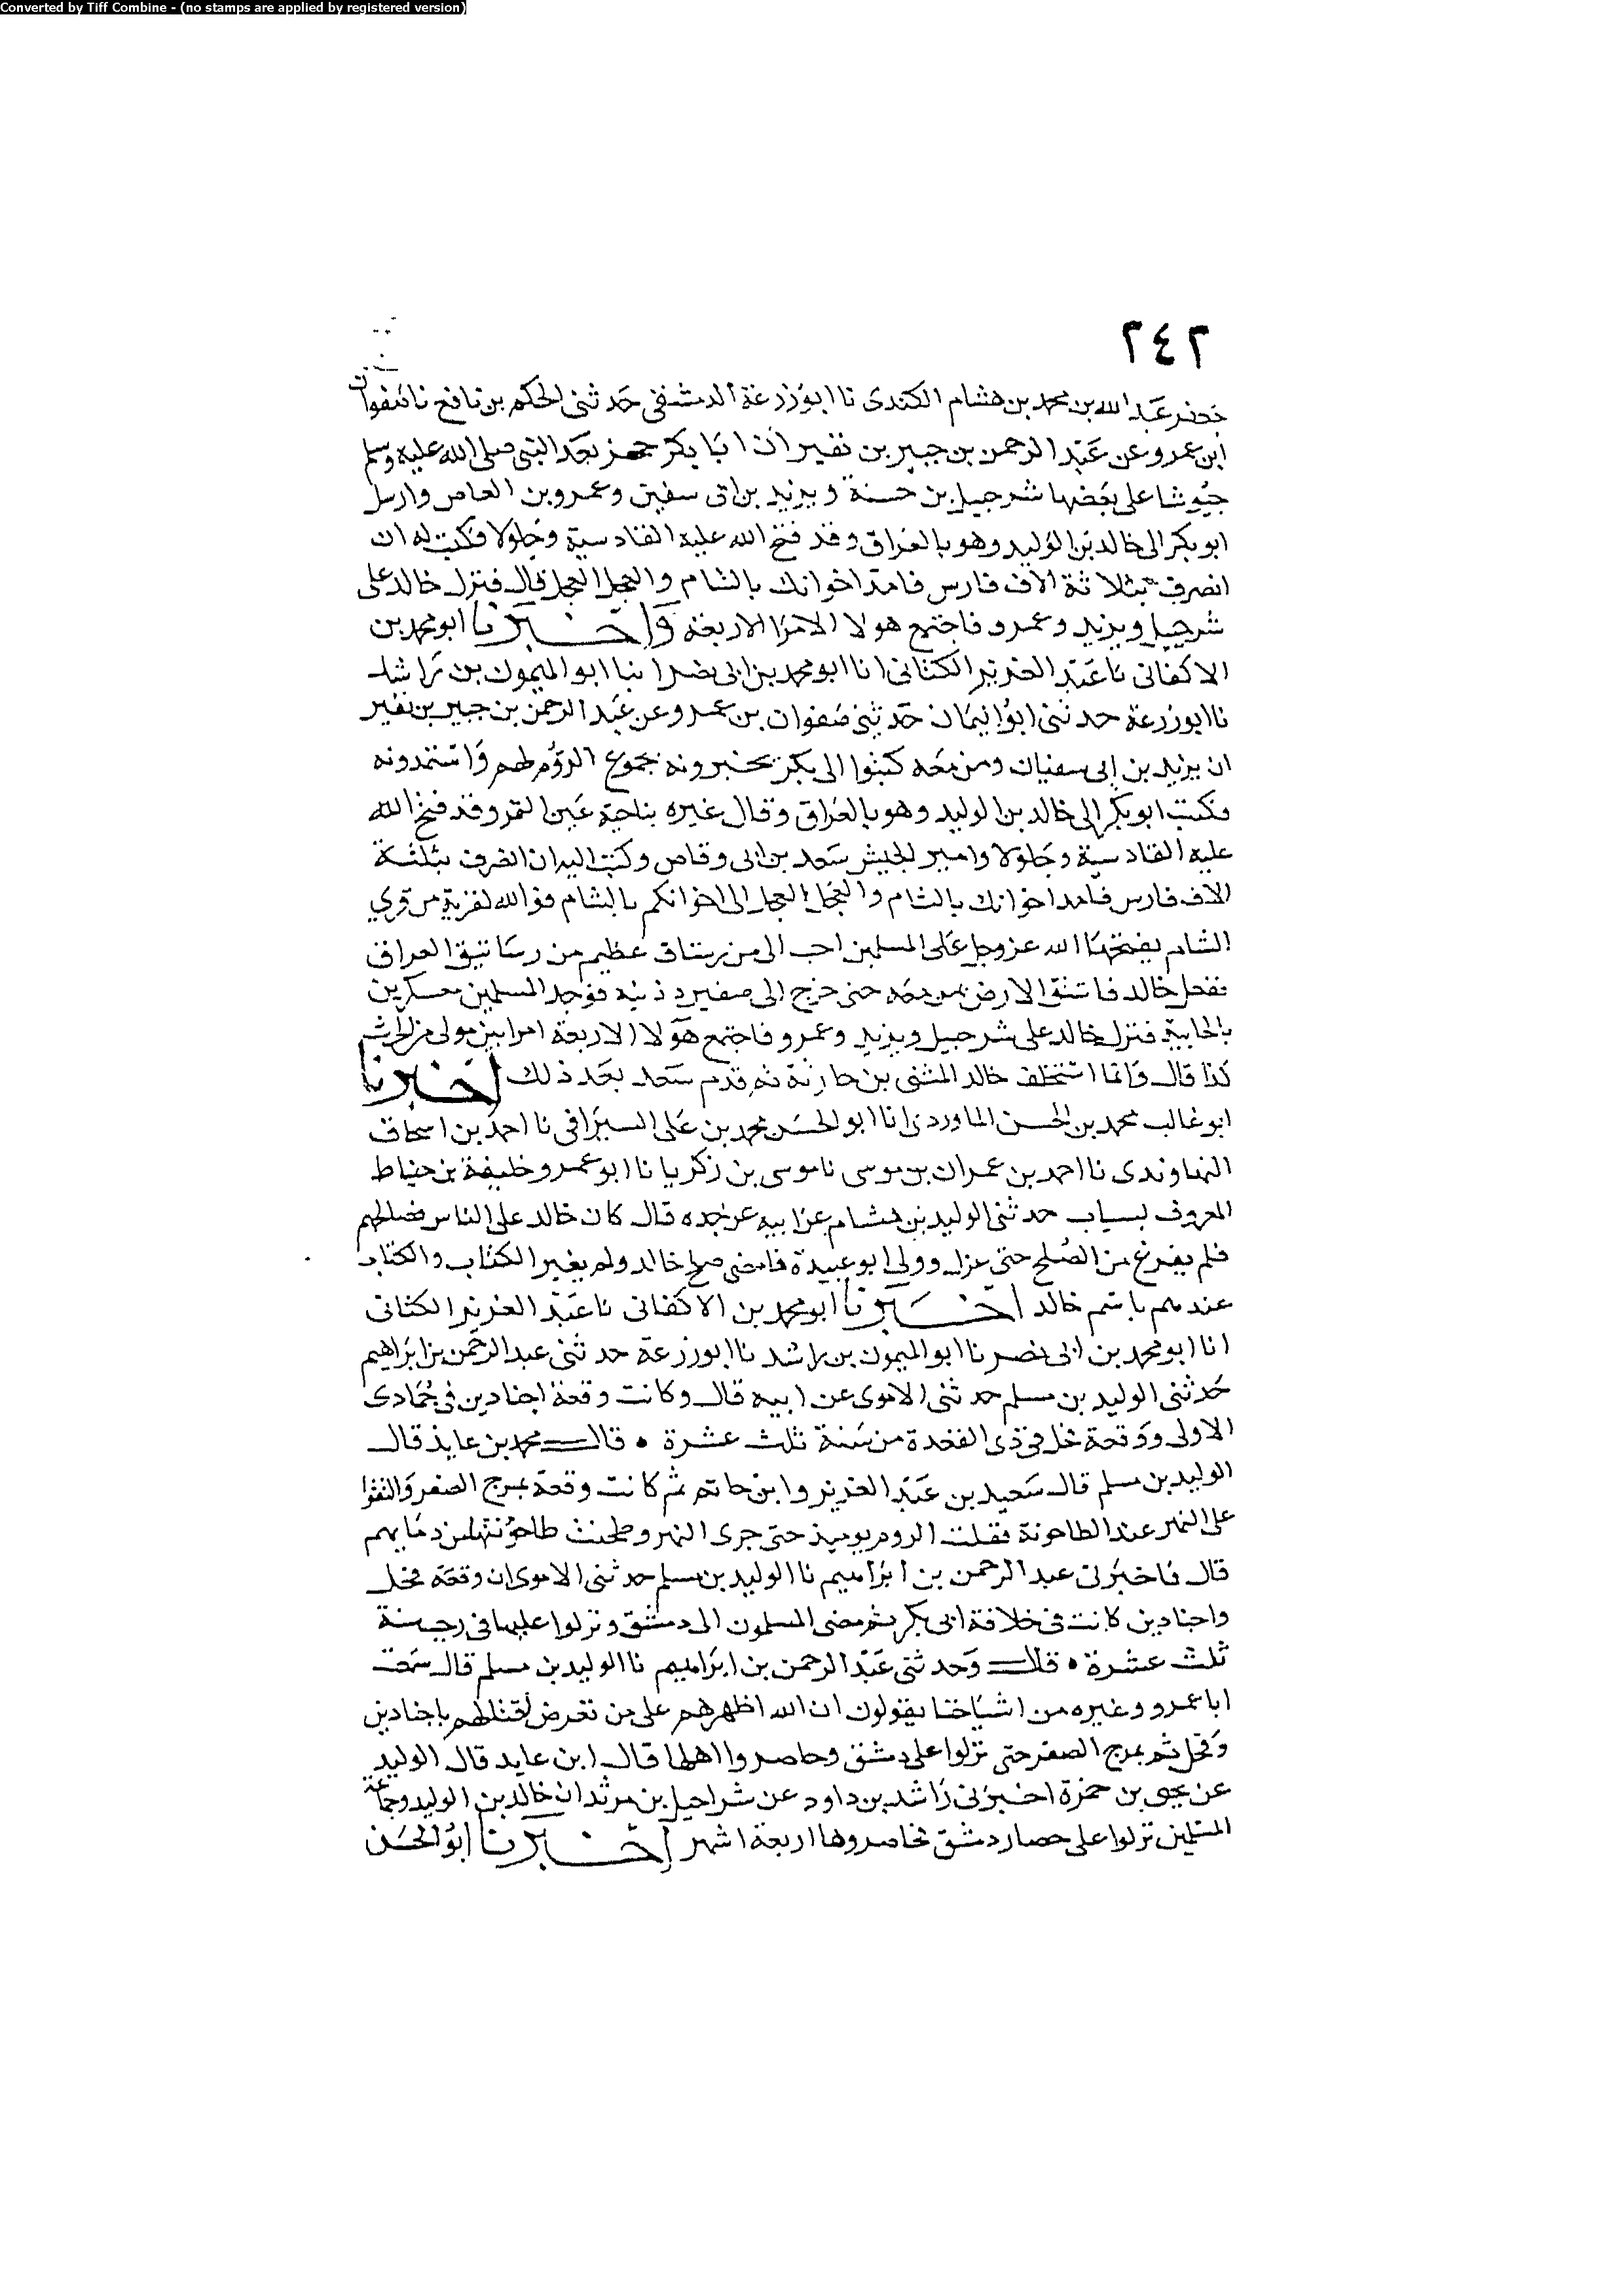 Converted by Tiff Combine - (no stamps are applied by registered version)
٢٤٢
جعفر عبد الله بن محمد بن هشام الكندى نا ابو زرعة الدمشقى حدثنى الحكم بن نافع نا صفوان
ابن عمرو عن عبد الرحمن بن جبير بن نفير ان ابا بكر جهز بعد النبى صلى الله عليه وسلم
جيوشا على بعضها شرحبيل بن حسنة ويزيد بن ابى سفين وعمرو بن العاص وارسل
ابو بكر الى خالد بن الوليد وهو بالعراق وقد فتح الله عليه القادسية وجلولا فكتب له ان
انصرف بثلاثة الاف فارس فامد اخوانك بالشام والعجل العجل قال فنزل خالد على
شرحبيل ويزيد وعمرو فاجتمع هولا الامرا الاربعة واخبرنا ابو محمد بن
الاكفانى نا عبد العزيز الكتانى انا ابو محمد بن ابى نصر انبا ابو الميمون بن راشد
نا ابو زرعة حدثنى ابو اليمان حدثنى صفوان بن عمرو عن عبد الرحمن بن جبير بن نفير
ان يزيد بن ابى سفيان ومن معه كتبوا الى ابى بكر يخبرونه بجموع الروم لهم واستمدونه
فكتب ابو بكر الى خالد بن الوليد وهو بالعراق وقال غيره بناحية عين التمر وقد فتح الله
عليه القادسية وجلولا وامير الجيش سعد بن ابى وقاص وكتب اليه ان انصرف بثلثة
الاف فارس فامد اخوانك بالشام والعجل العجل الى اخوانكم بالشام فو الله لقرية من قري
الشام يفتحها الله عز وجل على المسلمين احب الى من رستاق عظيم من رساتيق العراق
ففعل خالد فاشتق الارض بمن معه حتى خرج الى ضمير وذنبه فوجد المسلمين معسكرين
بالجابية فنزل خالد على شرحبيل ويزيد وعمرو فاجتمع هولا الاربعة امرا
كذا قال وانما استخلف خالد المثنى بن حارثة ثم قدم سعد بعد ذلك اخبرنا
ابو غالب محمد بن الحسن الماوردى انا ابو الحسن محمد بن على السيرافى نا احمد بن اسحاق
النهاوندى نا احمد بن عمران بن موسى نا موسى بن زكريا نا ابو عمرو خليفة بن خياط
المعروف بشباب حدثنى الوليد بن هشام عن ابيه عن جده قال كان خالد على الناس فصالحهم
فلم يفرغ من الصلح حتى عزل وولى ابو عبيدة فامضى صلح خالد ولم يغير الكتاب والكتاب
عندهم باسم خالد اخبرنا ابو محمد بن الاكفانى نا عبد العزيز الكتانى
انا ابو محمد بن ابى نصر نا ابو الميمون بن راشد نا ابو زرعة حدثنى عبد الرحمن بن ابراهيم
حدثنى الوليد بن مسلم حدثنى الاموى عن ابيه قال وكانت وقعة اجنادين فى جمادى
الاولى ووقعة فحل فى ذى القعدة من سنة ثلث عشرة • قال محمد بن عايذ قال
الوليد بن مسلم قال سعيد بن عبد العزيز وابن جابر ثم كانت وقعة بمرج الصفر والتقوا
على النهر عند الطاحونة فقتلت الروم يوميذ حتى جرى النهر وطحنت طاحونتها من دمايهم
قال فاخبرنى عبد الرحمن بن ابراهيم نا الوليد بن مسلم حدثنى الاموى ان وقعة فحل
واجنادين كانت فى خلافة ابى بكر ثم مضى المسلمون الى دمشق ونزلوا عليها فى رجب سنة
ثلث عشرة • قال وحدثنى عبد الرحمن بن ابراهيم نا الوليد بن مسلم قال سمعت
ابا عمرو وغيره من اشياخنا يقولون ان الله اظهرهم على من تعرض لقتالهم باجنادين
وفحل ثم بمرج الصفر حتى نزلوا على دمشق وحاصروا اهلها قال ابن عايد قال الوليد
عن يحيى بن حمزة اخبرنى راشد بن داود عن شراحيل بن مرثد ان خالد بن الوليد وجماعة
المسلمين نزلوا على حصار دمشق فحاصروها اربعة اشهر اخبرنا ابو الحسن